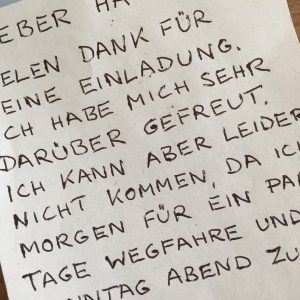 EBER HA
ELEN DANK FÜR
EINE EINLADUNG.
CH HABE MICH SEHR
DARÜBER GEFREUT.
ICH KANN ABER LEIDER
NICHT KOMMEN, DA ICH
MORGEN FÜR EIN PAA
TAGE WEGFAHRE UND
NNTAG ABEND ZU